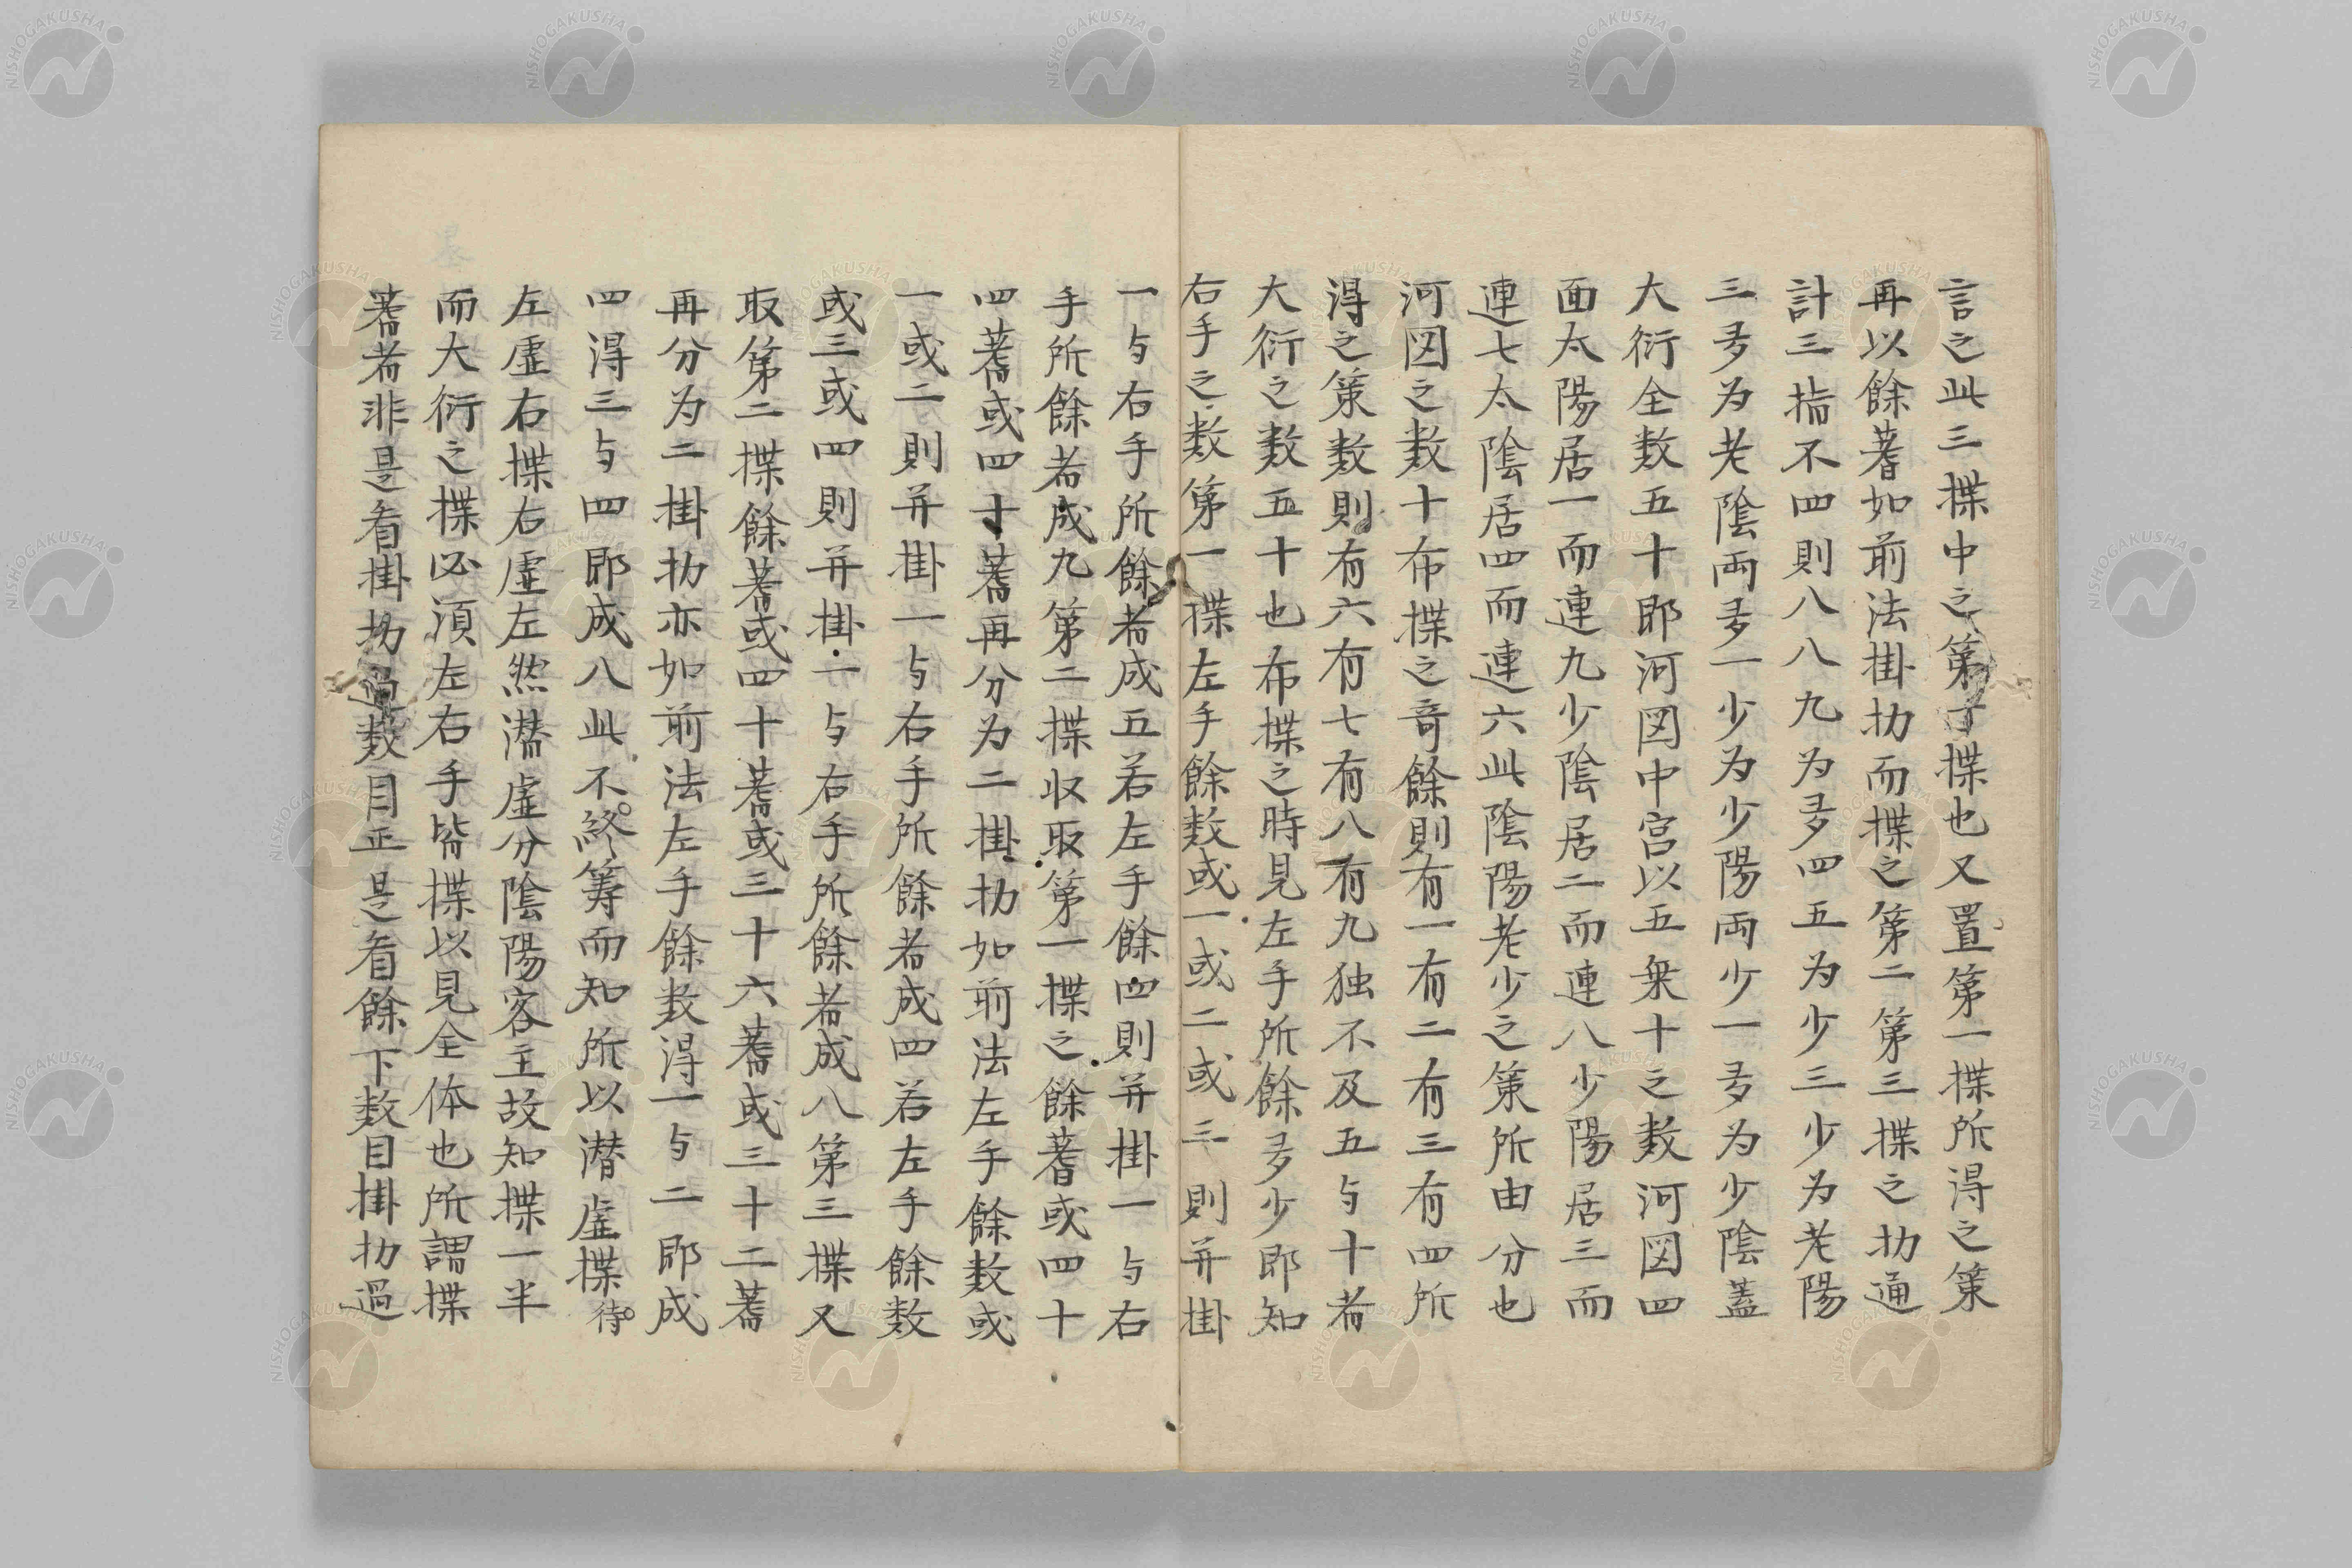 言之此三揲中之第一揲也又置第一揲所得之策
再以餘蓍如前法掛扐而揲之第二第三揲之扐通
計三指不四則八八九为多四五为少三少为老陽
三多为老陰両多一少为少陽両少一多为少陰蓋
大衍全数五十即河図中宮以五乗十之数河図四
面太陽居一而連九少陰居二而連八少陽居三而
連七太陰居四而連六此陰陽老少之策所由分也
河図之数十布揲之奇餘則有一有二有三有四所
得之策数則有六有七有八有九独不及五与十者
大衍之数五十也布揲之時見左手所餘多少即知
右手之数第一揲左手餘数或一或二或三則并掛
一与右手所餘者成五若左手餘四則并掛一与右
手所餘者成九第二揲収取第一揲之餘蓍或四十
四蓍或四十蓍再分为二掛扐如前法左手餘数或
一或二則并掛一与右手所餘者成四若左手餘数
或三或四則并掛一与右手所餘者成八第三揲又
取第二揲餘蓍或四十蓍或三十六蓍或三十二蓍
再分为二掛扐亦如前法左手餘数得一与二即成
四得三与四即成八此不終筭而知所以潜虚揲待
左虚右揲右虚左然潜虚分陰陽客主故知揲一半
而大衍之揲必須左右手皆揲以見全体也所謂揲
蓍者非是看掛扐過数目正是看餘下数目掛扐過
NISHOGAKUSHA